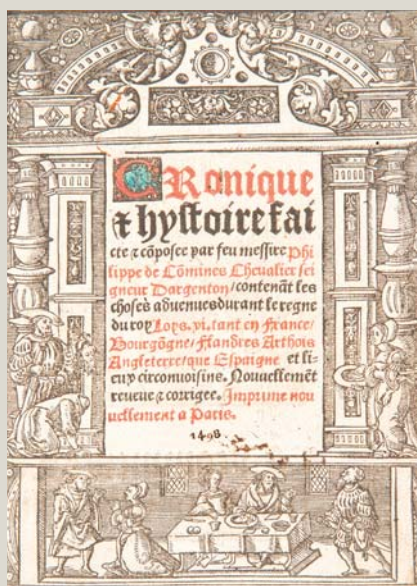 CRonique
⁊ hystoire fai
cte ⁊ cōposee par feu messire Phi
lippe de Cōmines Cheualier sei
gneur Dargenton/contenāt les
choses aduenues durant le regne
du roy Loys. xi. tant en France/
Bourgōgne/Flandres Arthois
Angleterre/que Espaigne et li-
eux circonuoisins. Nouuellemēt
reueue ⁊ corrigee. Imprime nou
uellement a Paris.
1498